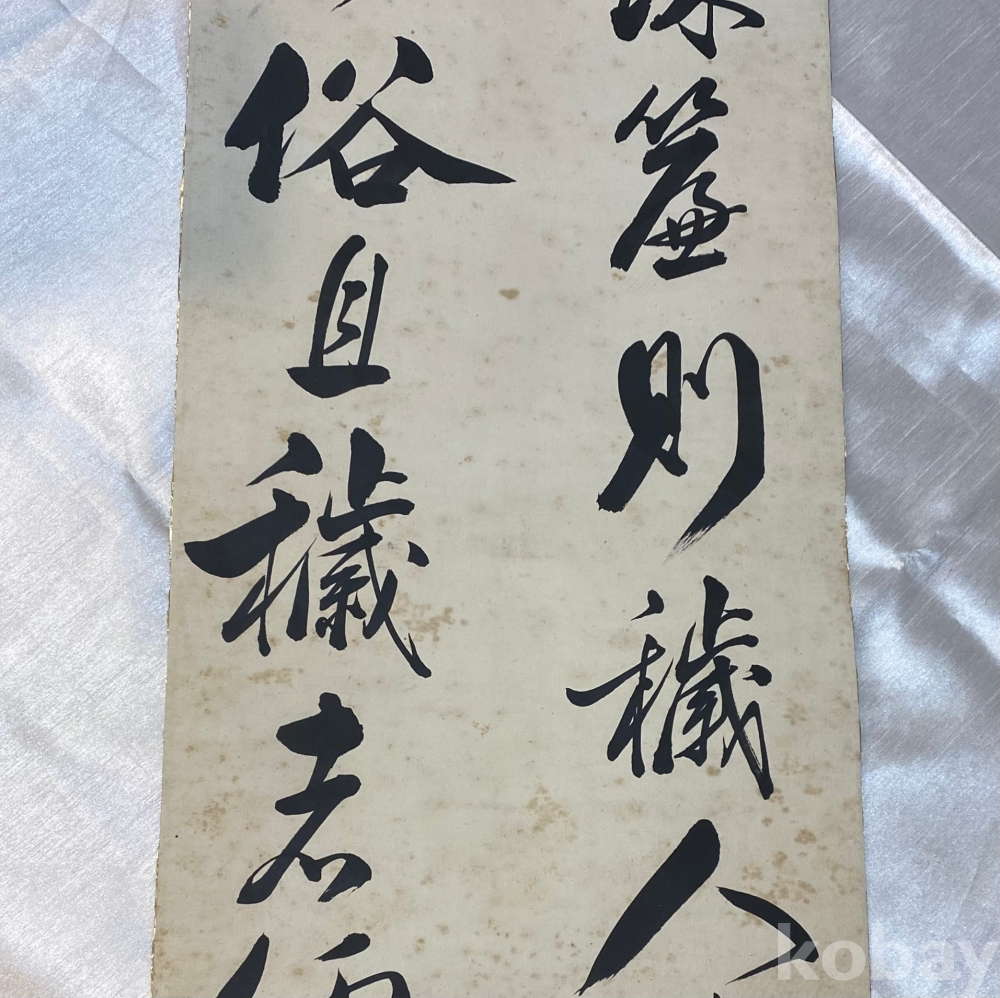 簾則穢人
俗且穢者
kobay